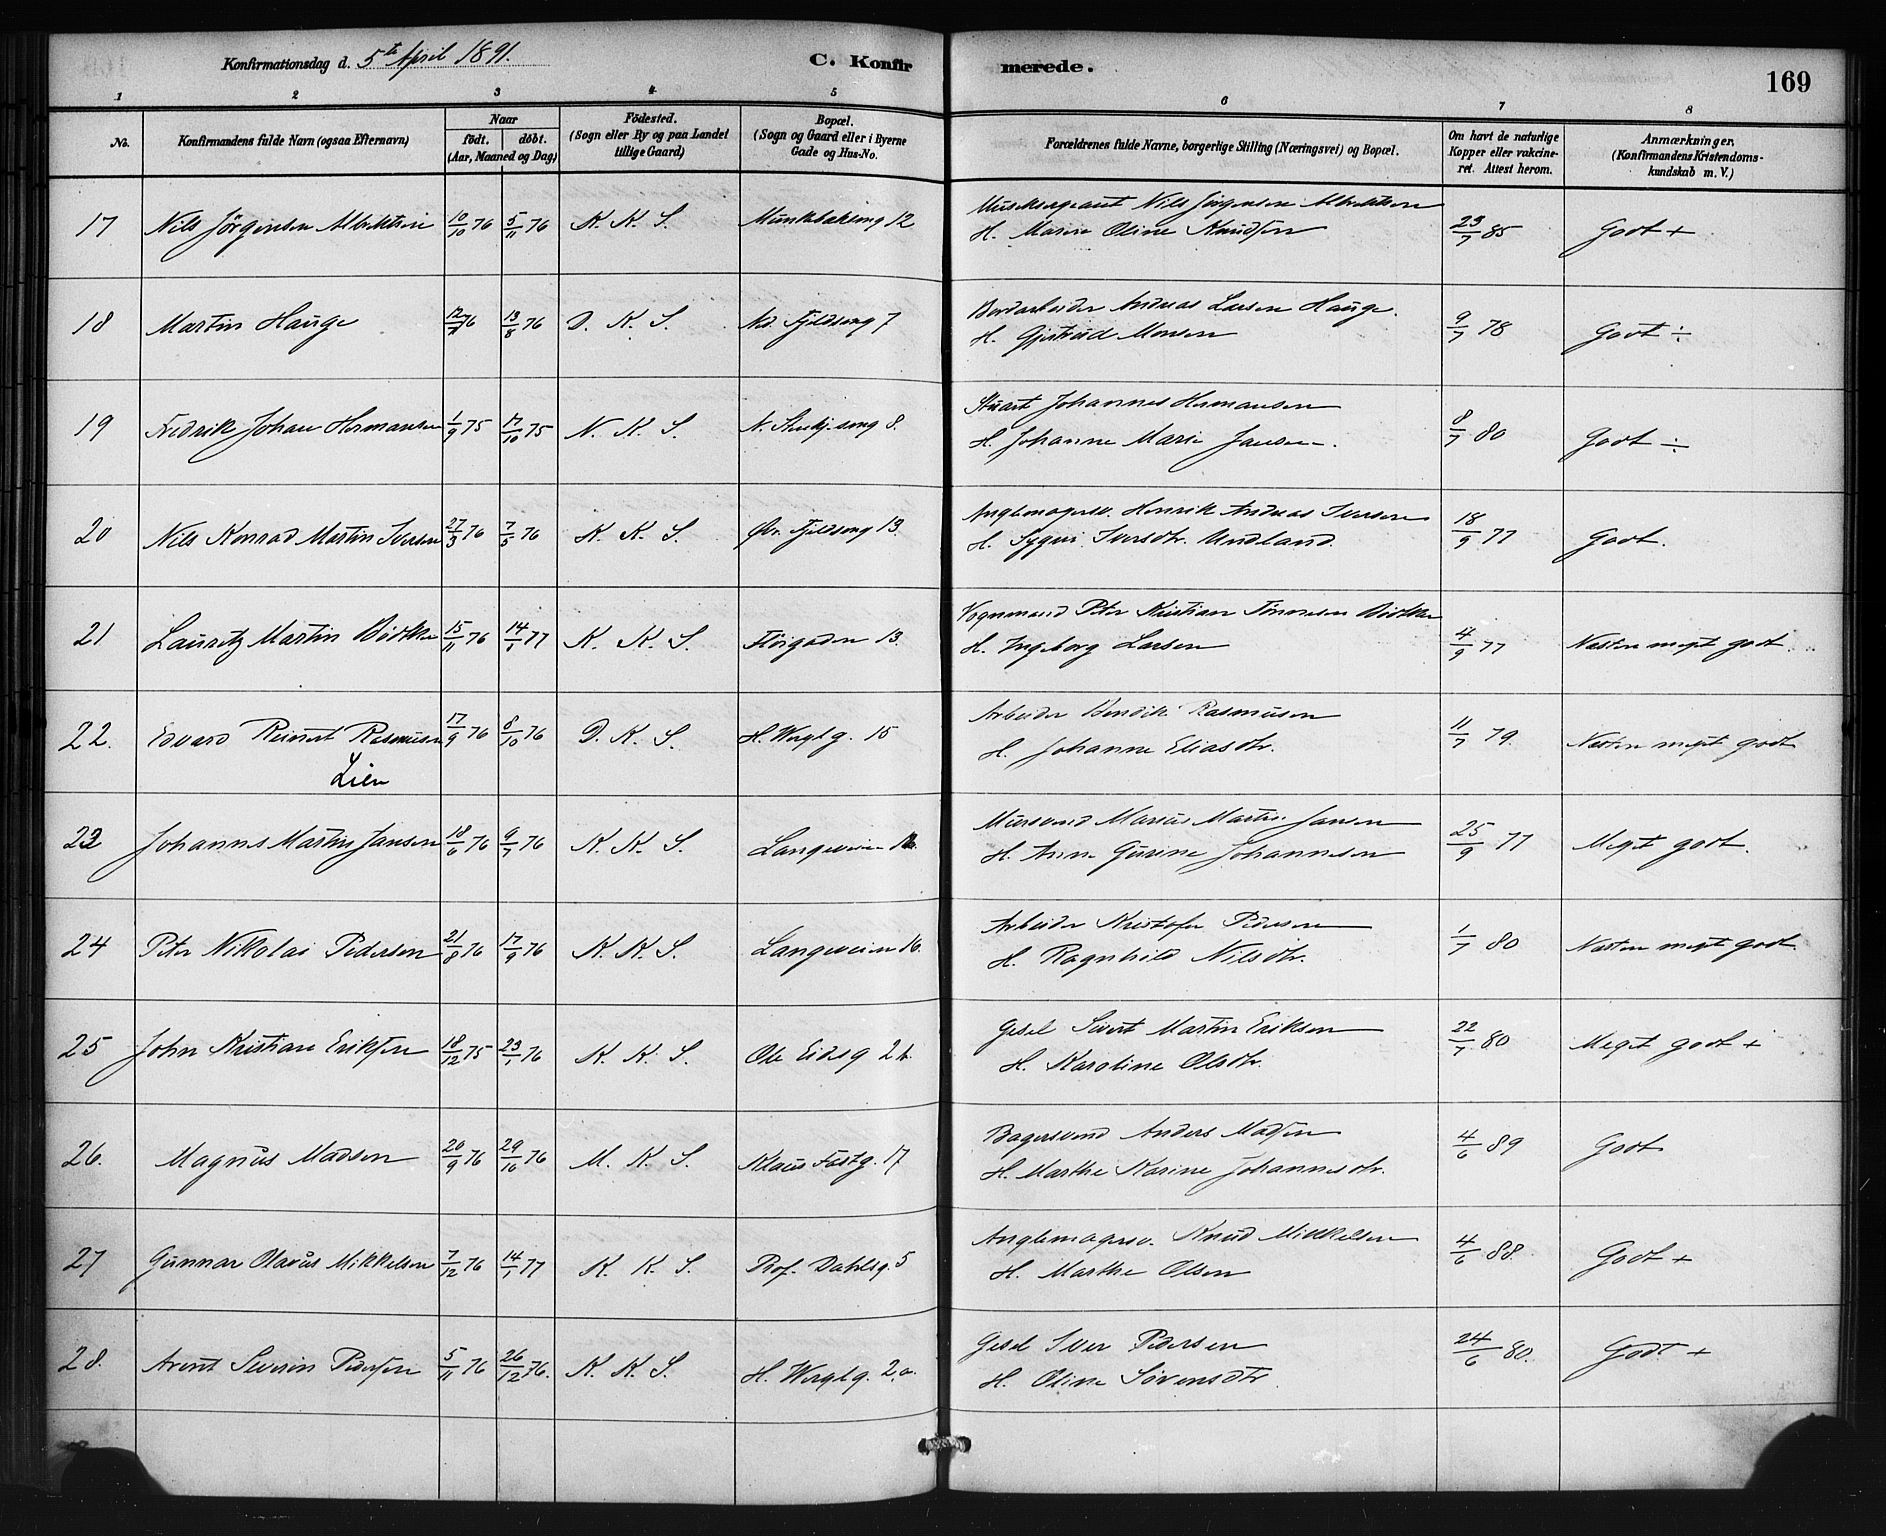 Konfirmationsdag d. 5te April 1891.
C. Konfirmerede.
169
1 2 3 4 5 6 7 8
No.
Konfirmandens fulde Navn (ogsaa Efternavn)
Naar
födt. döbt.
(Aar, Maaned og Dag)
Födested.
(Sogn eller By og paa Landet
tillige Gaard)
Bopæl.
(Sogn og Gaard eller i Byerne
Gade og Hus-No.
Forældrenes fulde Navne, borgerlige Stilling (Næringsvei) og Bopæl.
Om havt de naturlige
Kopper eller vakcine-
ret. Attest herom.
Anmærkninger.
(Konfirmandens Kristendoms-
kundskab m. V.)
17 Nils Jörgensen Albrektsen 10/10 76 5/11 76 K. K. S. 12
Nils Jörgensen Albrektsen
H. Maren Oline Knudsen 23/7 85 Godt +
18 Martin Hauge 13/8 76 D. K. S. Nd. Fjeldsmg 7
Andreas Larsen Hauge.
H. Gjertrud Monsen 9/7 78 Godt ÷
19 Fredrik Johan Hermansen 1/9 75 17/10 75 N. K. S. 8.
Stuart Johannes Hermansen
H. Johanne Marie Jansen. 8/7 80 Godt ÷
20 Nils Konrad Martin Iversen 27/3 76 7/5 76 K. K. S. Øvr. Fjeldsmg 13.
Henrik Andreas Iversen
H. Iversdtr. Undland. 18/9 77 Godt.
21 Lauritz Martin Bödtker 15/11 76 14/1 77 K. K. S. 13.
Vognmand Peter Kristian Tönnesen Bödtker
H. Ingeborg Larsen 4/9 77 Næsten meget godt.
22. Edvard Reinert Rasmusen
Lien 17/9 76 8/10 76 D. K. S. H. Werglg. 15
Arbeider Bendik Rasmusen
H. Johanne Eliasdtr. 11/7 79. Næsten meget godt
23 Johannes Martin Jansen 18/6 76 9/7 76 K. K. S. Langeveien
Mursvend Marius Martin Jansen
H. Anne Gurine Johannesen 25/9 77 Meget godt.
24 Peter Nikolai Pedersen 21/8 76 17/9 76 K. K. S. Langeveien 16.
Arbeider Kristofer Pedersen
H. Ragnhild Nilsdtr. 1/7 80 Næsten meget godt.
25 John Kristian Eriksen 18/12 75 23/1 76 K. K. S.
Gesel Sivert Martin Eriksen
H. Karoline Olsdtr. 22/7 80 Meget godt +
26. Magnus Madsen 20/9 76 29/10 76 M. K. S. Klaus 17
Bagersvend Anders Madsen
H. Marthe Karine Johannesdtr. 4/6 89 Godt
27 Gunnar Olavus Mikkelsen 7/12 76 14/1 77 K. K. S. Prof. Dahlsg. 5
Knud Mikkelsen
H. Marthe Olsen 4/6 88. Godt +
28. Arent Severin Pedersen 5/11 76 26/12 76. K. K. S. H. Werglg. 2a.
Gesel Iver Pedersen
H. Oline Sörensdtr 24/6 80. Godt +